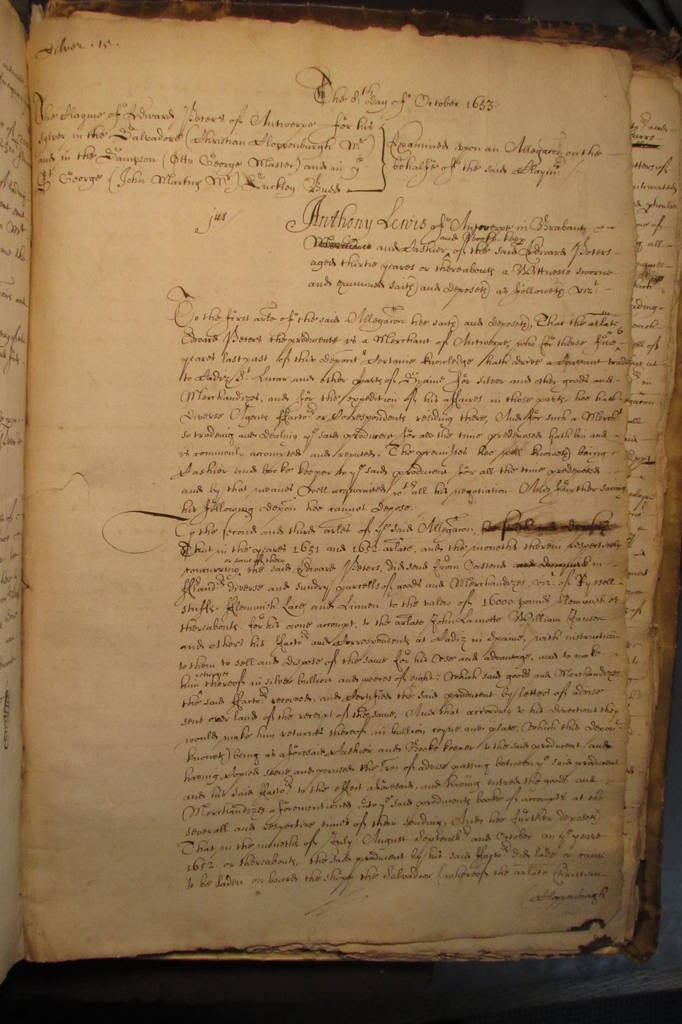 Silver. 15.
The 8th day of October 1653
The Clayme of Edward Peters of Antwerpe for his
silver in the Salvadore (Christian Cloppenburgh Mr)
and in the Sampson (Otto George Master) and in ye
St George (John Martins Mr) Suckley Budd
Examined upon an Allegacon on the
behalfe of the said Claymt
jus
Anthony Lewis of Antwerpe in Brabant
and Booke keeper
and Cashier of the said Edward Peters
aged thirtie yeares or thereabouts a Wittnesse sworne
and examined saith and deposeth as followeth vizt.
To the first arle of the said Allegacon hee saith and deposeth, That the arlate
Edward Peters the producent is a Merchant of Antwerpe, who for these five
yeares last past of this deponts certaine knowledge hath drive a constant trade
to Cadiz St. Lucar and other parts of Spaine for silver and other goods and
Merchandizes, and for the expedition of his affaires in those parts, hee hath
diverse Agents Factors or Correspondents residing there, And for such a Mercht
so tradeing and dealing ye said producent for all the time predeposed hath bin and
is commonly accompted and reputed. The premisses hee well knoweth being
Cashier and booke keeper to ye said producent for all the time predeposed
and by that meanes well acquainted wth all his negotiation. And further saving
his following depon hee cannot depose.
To the second and third arles of ye said Allegacon,
That in the yeares 1651 and 1652 arlate, and the moneths therein respectively
or some of them
concurring the said Edward Peters, did send from Oastend in
Flandrs diverse and sundry parcells of goods and Merchandizes, vizt of Ryssell
stuffs, Flemmish Lace and Linnen to the value of 16000 pound Flemmish or
thereabouts, for his owne accompt, to the arlate John Lamotte William Jansen
and others his Factors and Correspondents at Cadiz in Spaine, with instruction
to them to sell and dispose of the same for his Use and advantage, and to make
returnes
him thereof in silver bullion and peeces of eight: Which said goods and Merchandizes
the said Factors received, and certified the said producent by letters of advise
sent over land of the receipt of the same, And that according to his directions they
would make him returnes thereof in bullion, coyne and plate, Which this depont
knoweth being as aforesaid Cashier and Booke keeper to the said producent, and
having Copied some and perused the lres of advise passing betweene ye said producent
and his said Factors to the effect aforesaid, and having entred the goods and
Merchandizes aforementioned into ye said producents booke of accompts at the
severall and respective times of their sending. And hee further deposeth
That in the moneths of July August September and October in ye yeare
1652 or thereabouts, the said producent by his said Factors did lade or cause
to be laden on board the shipp the Salvador (whereof the arlate Christian
Cloppenburgh